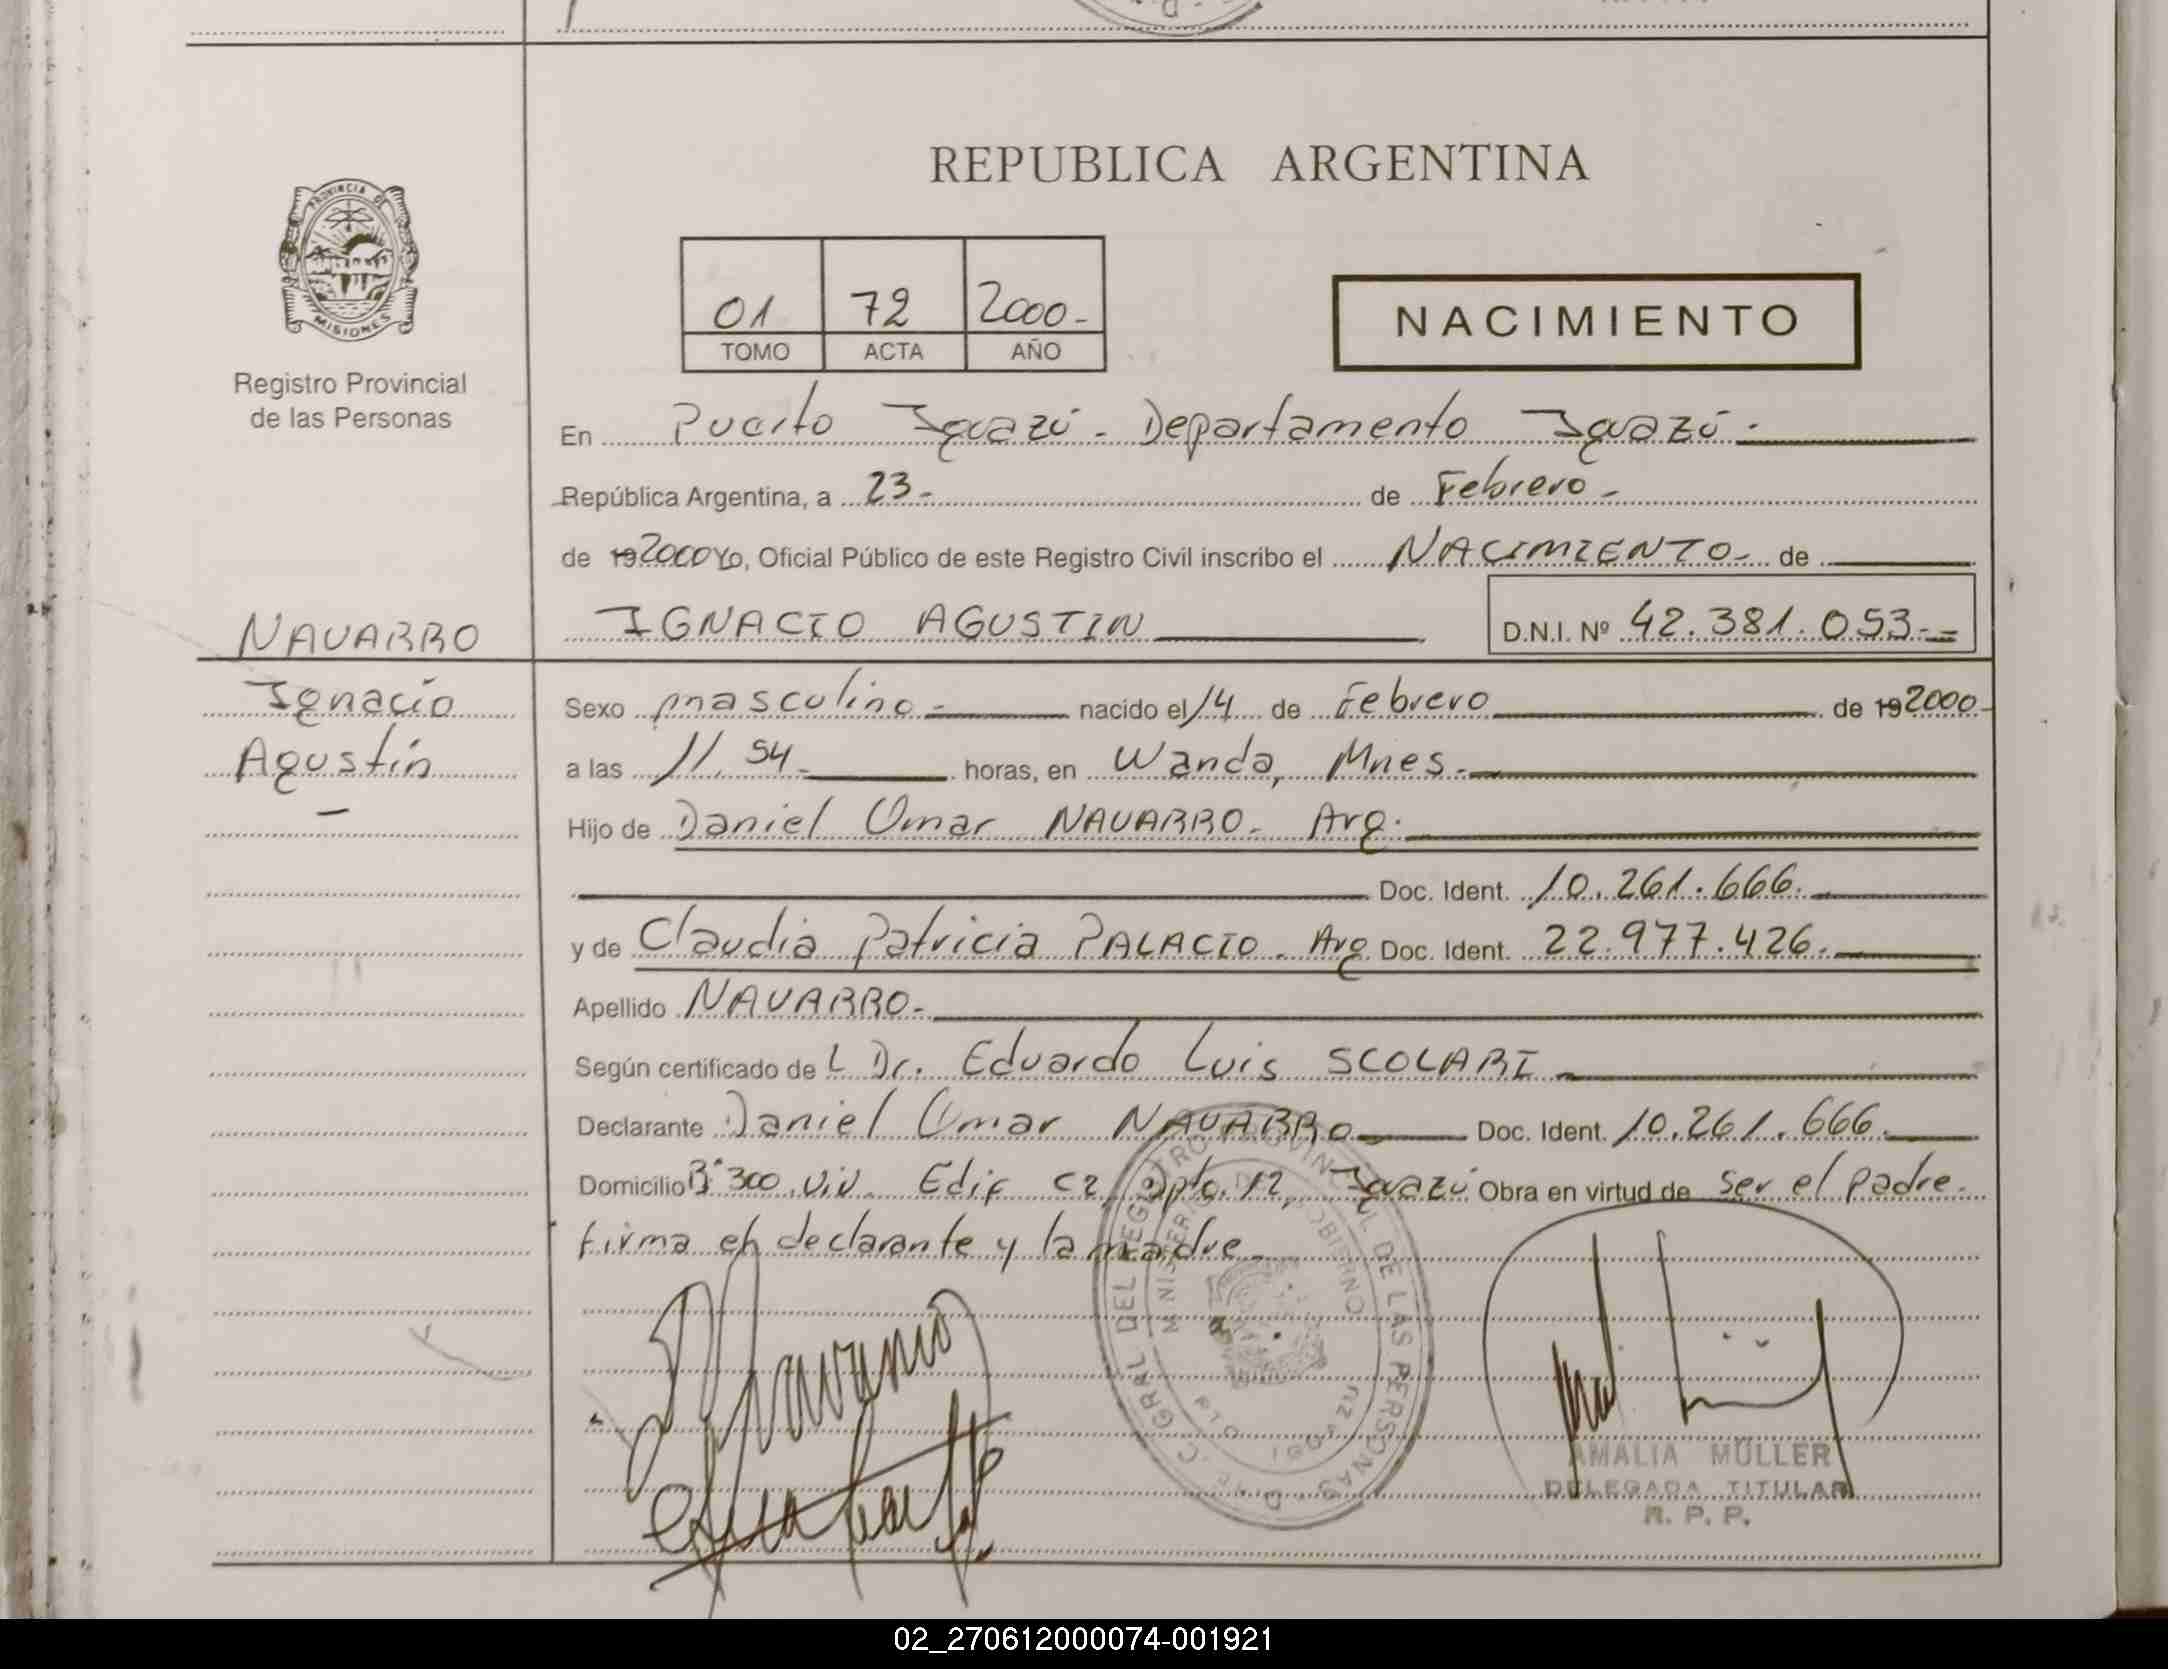 REPUBLICA ARGENTINA
PROVINCIA DE
MISIONES
Registro Provincial
de las Personas
01 72 2000-
TOMO ACTA AÑO
NACIMIENTO
En Puerto Iguazú - Departamento Iguazú -
República Argentina, a 23- de Febrero -
de 19 2000 Yo, Oficial Público de este Registro Civil inscribo el NACIMIENTO- de
NAVARRO
IGNACIO AGUSTIN
D.N.I. Nº 42.381.053-
Ignacio
Agustín
-
Sexo masculino - nacido el 14 de Febrero de 19 2000-
a las 11,54- horas, en Wanda, Mnes.-
Hijo de Daniel Omar NAVARRO- Arg.
Doc. Ident. 10.261.666.
y de Claudia Patricia PALACIO - Arg Doc. Ident. 22.977.426.
Apellido NAVARRO-
Según certificado de L Dr. Eduardo Luis SCOLARI
Declarante Daniel Omar NAVARRO Doc. Ident. 10.261.666.
Domicilio Bº 300 viv. Edif C2, Dpto. 12, Iguazú Obra en virtud de Ser el padre.
firma el declarante y la madre.
GRAL DEL REGISTRO PROVINCIAL DE LAS PERSONAS
MINISTERIO DE GOBIERNO
PTO IGUAZU
AMALIA MÜLLER
DELEGADA TITULAR
R. P. P.
02_270612000074-001921